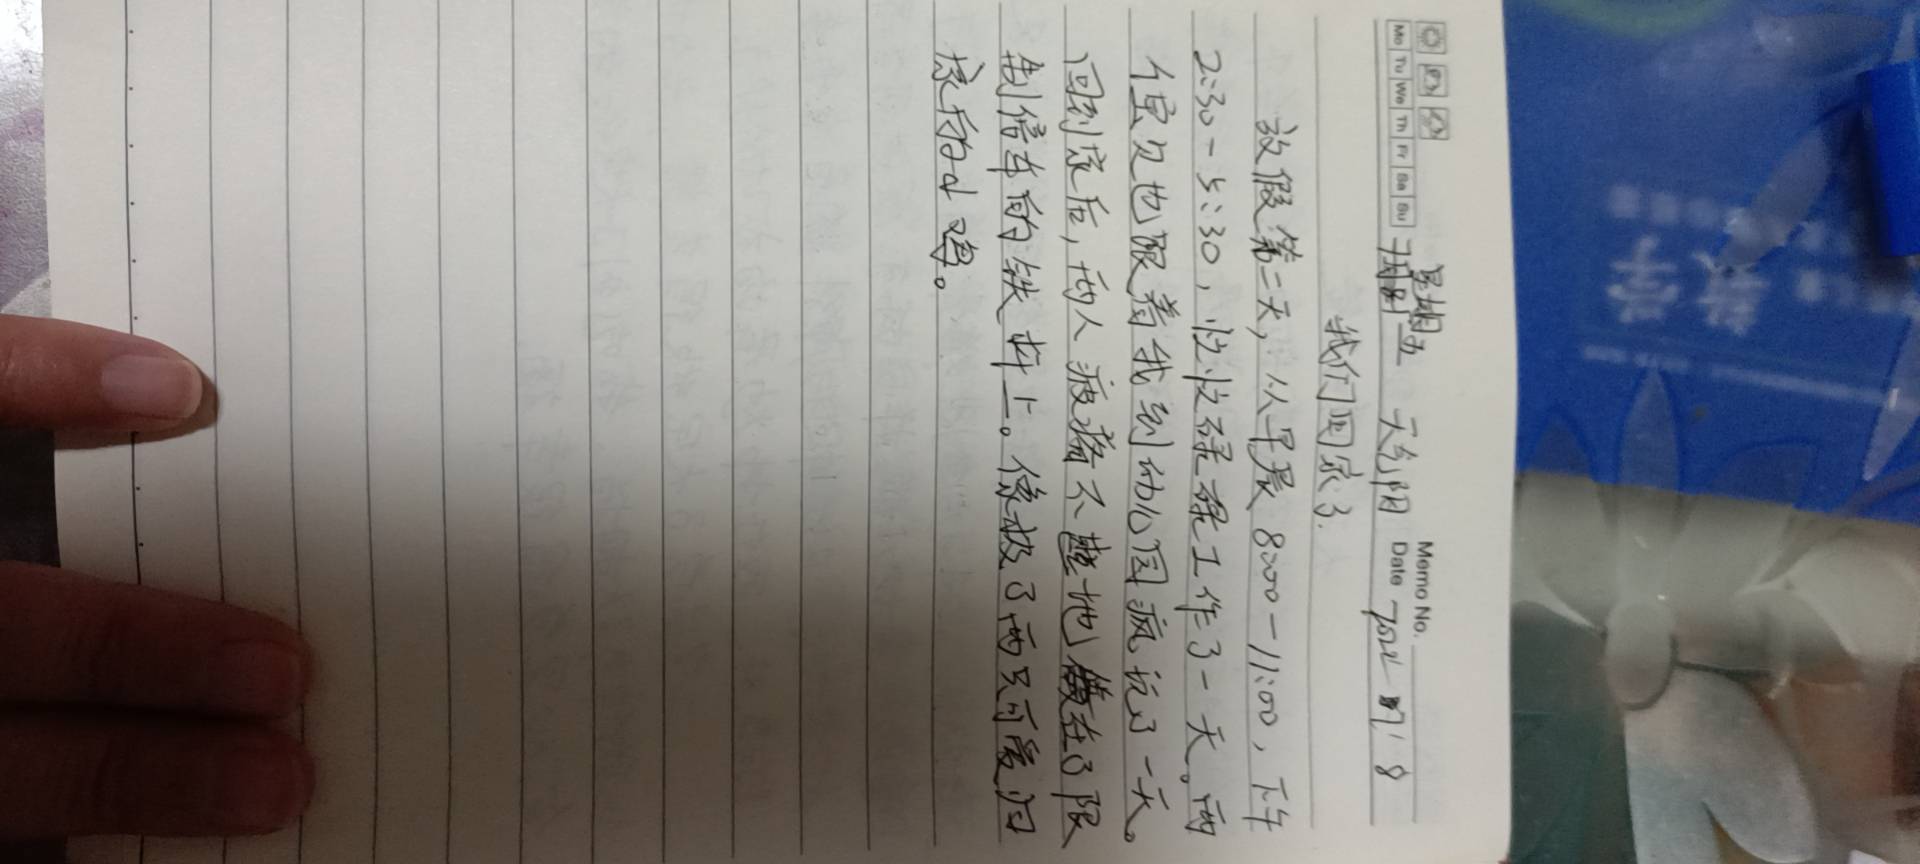 Memo No.
Mo Tu We Th Fr Sa Su
星期五 天气阴 Date
我们回家了.
放假第二天，从早晨 8:00-11:00，下午
2:30-5:30，忙忙碌碌工作了一天。两
个宝贝也跟着我到幼儿园疯玩了一天。
回到家后，两人疲惫不堪地坐在了限
制停车的铁杆上。像极了两只可爱归
家的小鸡。
数学